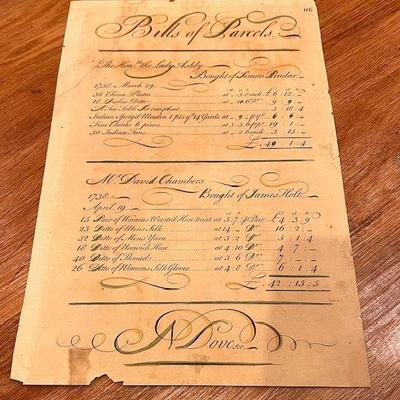 116
Bills of Parcels.
The Hon.ble the Lady Ashly
Bought of Simon Pindar.
1738. March 29.
36 China Plates at 3 each £ 6 12
18 Dishes Ditto at 9 9
A Tea Table Set compleat 3 18 4
Indian Sprigd Muslin 1 ps q.t 14 Yards at 9
Fine Chinks 6 pieces at 3 3 19 1
30 Indian Fans at 2 6 each 3 15
£ 49 1 4
M.r David Chambers
Bought of James Holt.
1738.
April 19
15 Pair of Womens Worsted Hose mixt at 5 7 p.r Par. £ 4 3 9
23 Ditto of Mens Silk at 14 D.o 16 2
32 Ditto of Mens Yarn at 3 2 D.o 5 1 4
18 Ditto of Norwich Hose at 4 10 D.o 4 7
40 Ditto of Thread at 3 6 D.o 7
26 Ditto of Womens Silk Gloves at 4 8 D.o 6 1 4
£ 42 15 5
N Dove